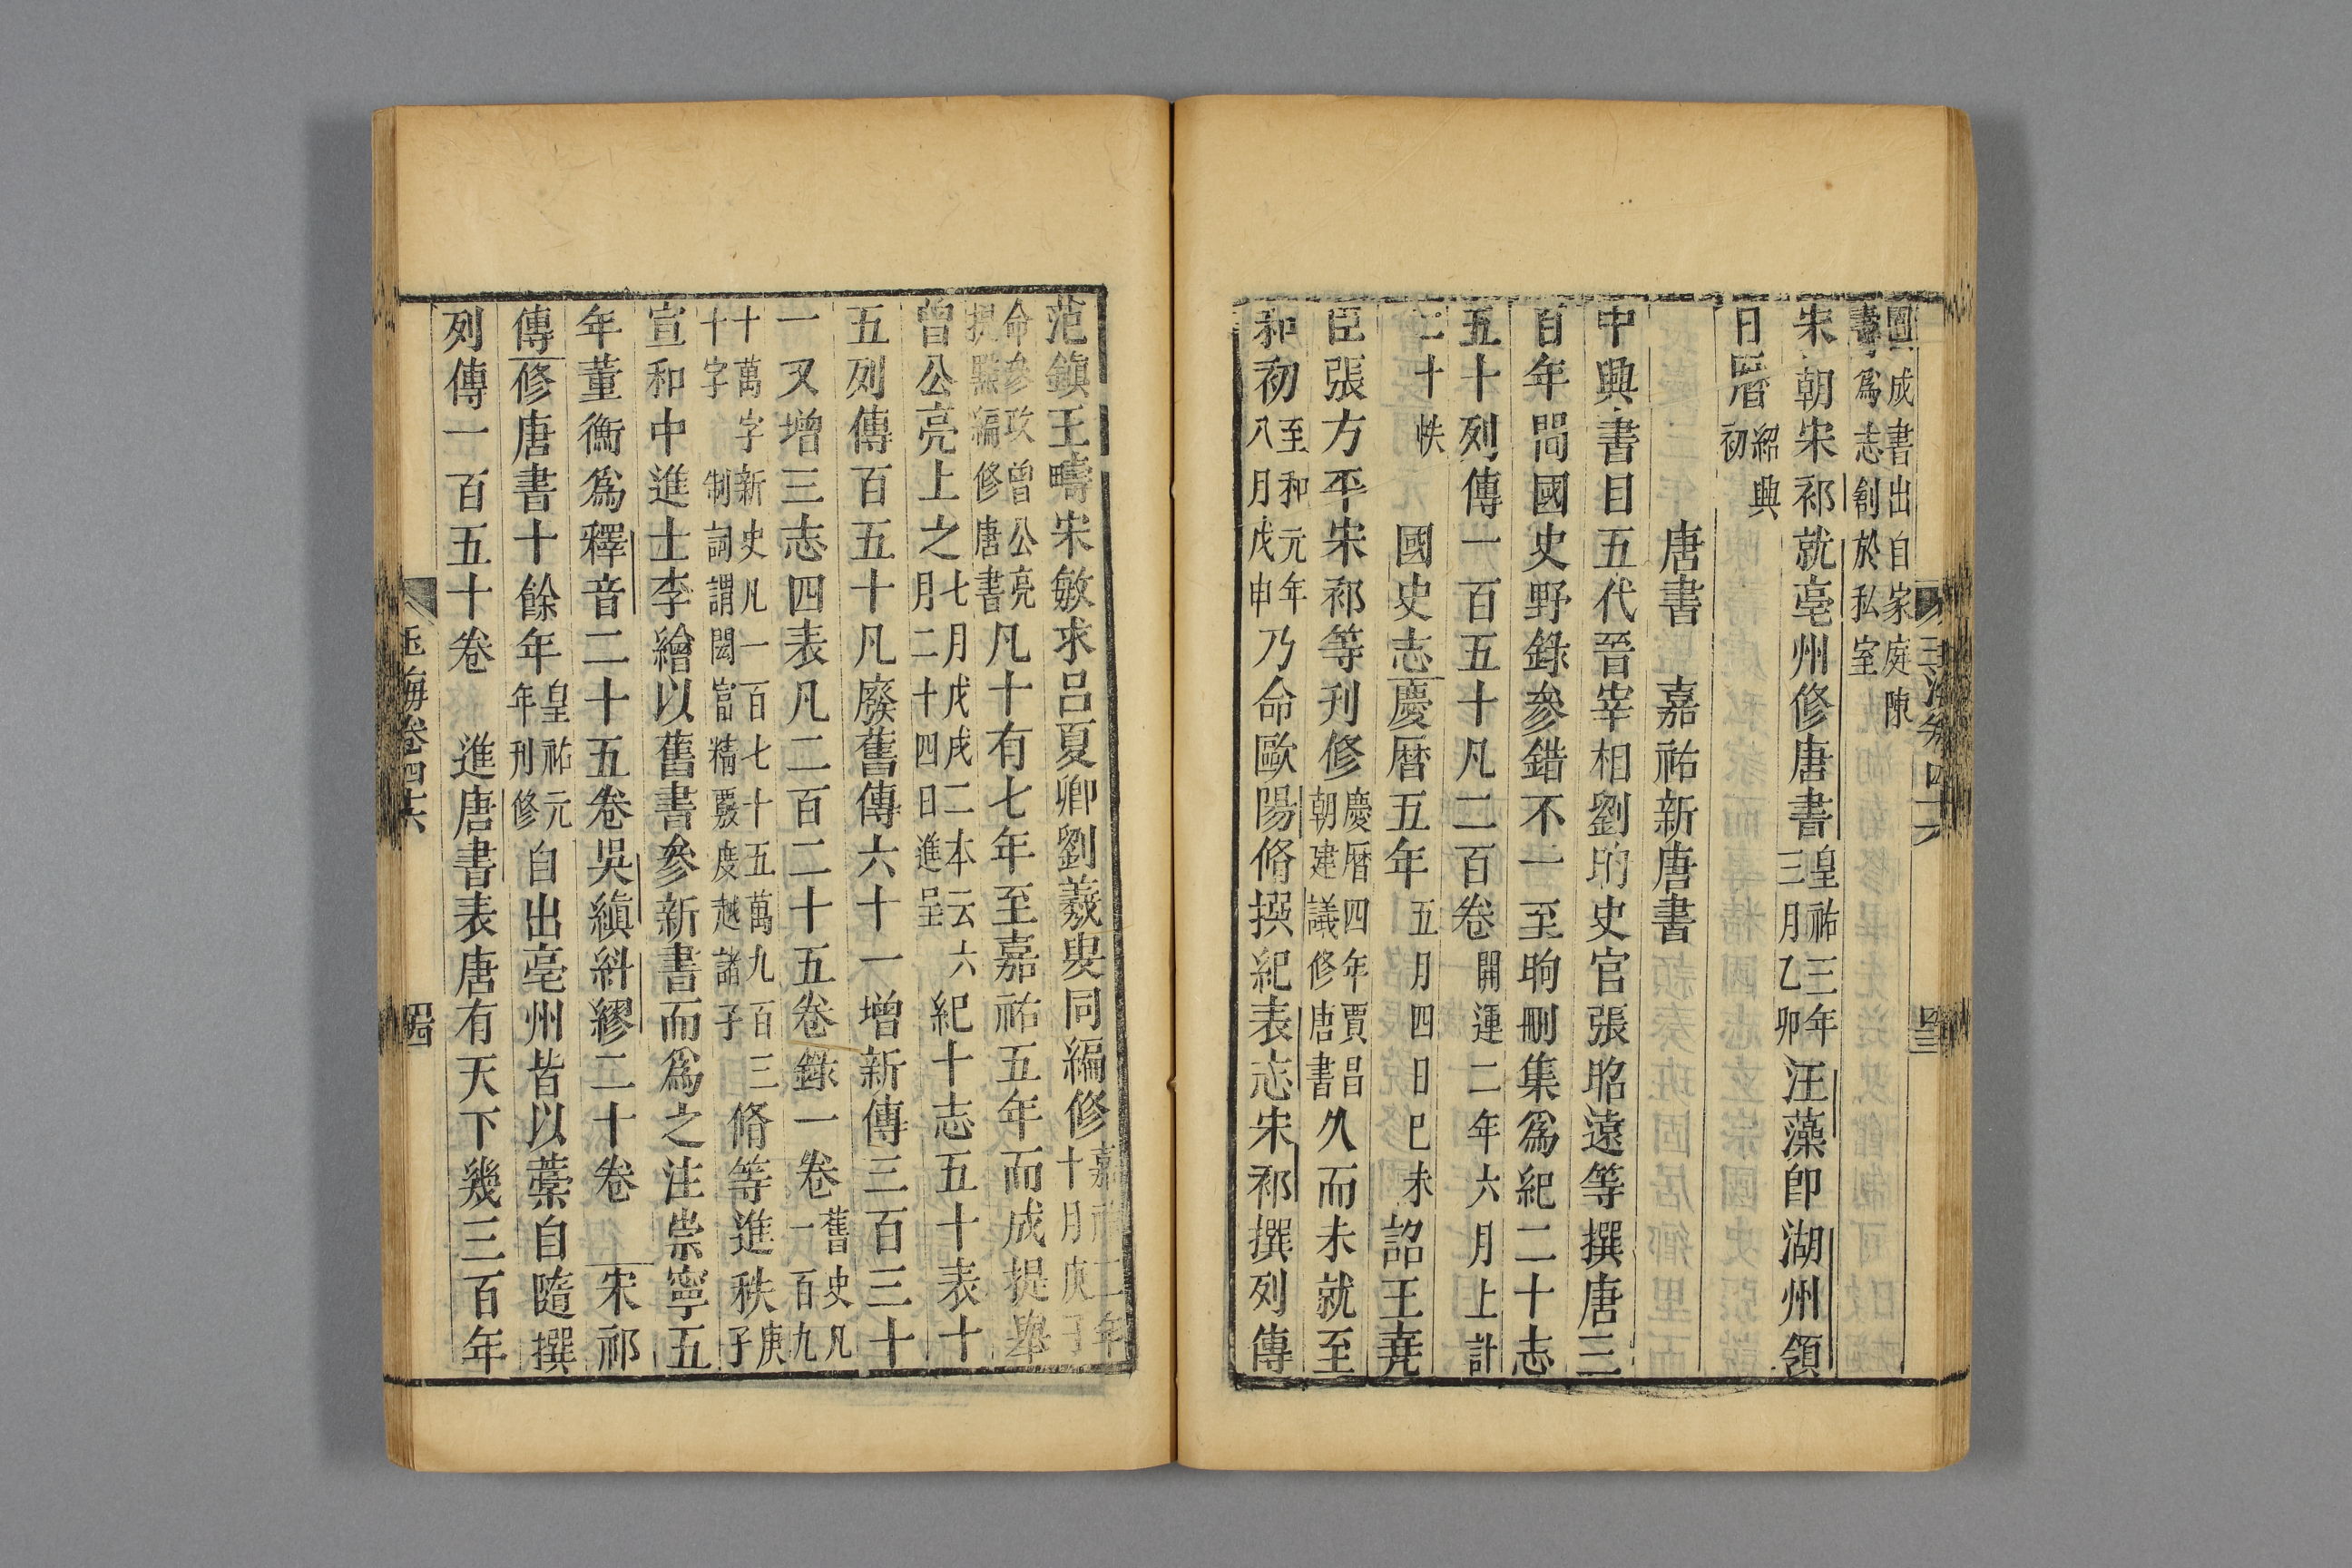 國成書出自家庭陳
壽爲志創於私室
宋朝宋祁就亳州修唐書皇祐三年三月乙卯汪藻即湖州領
日曆紹興初
唐書 嘉祐新唐書
中興書目五代晉宰相劉昫史官張昭遠等撰唐三
百年間國史野錄參錯不一至昫刪集爲紀二十志
五十列傳一百五十凡二百卷開運二年六月上計
二十帙 國史志慶曆五年五月四日己未詔王堯
臣張方平宋祁等刊修慶曆四年賈昌朝建議修唐書久而未就至
和初至和元年八月戊申乃命歐陽脩撰紀表志宋祁撰列傳
范鎮王疇宋敏求呂夏卿劉羲叟同編修嘉祐二年十月庚子
命參政曾公亮提舉編修唐書凡十有七年至嘉祐五年而成提舉
曾公亮上之七月戊戌二本云六月二十四日進呈紀十志五十表十
五列傳百五十凡廢舊傳六十一增新傳三百三十
一又增三志四表凡二百二十五卷錄一卷舊史凡一百九
十萬字新史凡一百七十五萬九百三十字制詞謂閎富精覈度越諸子脩等進秩庚子
宣和中進士李繪以舊書參新書而爲之注崇寧五
年董衝爲釋音二十五卷吳縝糾繆二十卷 宋祁
傳修唐書十餘年皇祐元年刊修自出亳州皆以藁自隨撰
列傳一百五十卷 進唐書表唐有天下幾三百年
玉海卷四十六